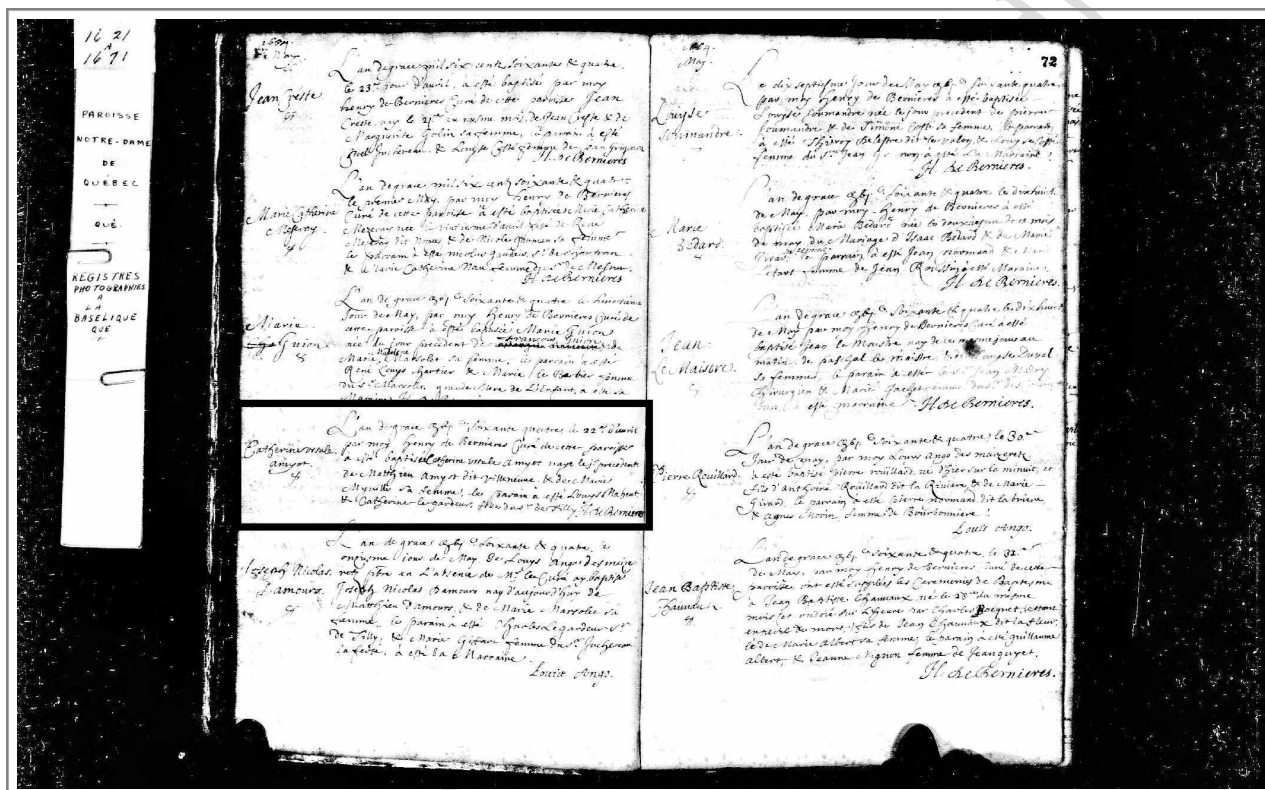 16 21
A
16 71
PAROISSE
NOTRE-DAME
DE
QUÉBEC
QUÉ.
REGISTRES
PHOTOGRAPHIES
A
LA
BASELIQUE
QUÉ
1664.
de May.
Jean Creste
L'an de grace mil six cents soixante & quatre
le 23e jour d'avril, a esté baptisé par moy
henry de Bernieres Curé de cette paroisse Jean
Creste, nay le mesme mois, de Jean Creste & de
Marguerite Golin sa femme, le parain a esté
Noel Juchereau, & Louyse Costé femme de Jean Grignon
H. de Bernieres
Marie Catherine
Mezeray
L'an de grace mil six cents soixante & quatre
le premier May, par moy Henry de Bernieres
Curé de cette paroisse a esté baptisée Marie Catherine
Mezeray née le d'avril de René
Mezeray dit Nopce & de Nicole sa femme
le parain a esté nicolas
& Marie Catherine femme du Sr de
H. de Bernieres
Marie
Guion
L'an de grace soixante & quatre le
Jour de May, par moy henry de Bernieres Curé de
cette paroisse a esté baptisée Marie Guion
née du jour precedent de françois Guion
Marie Marsolet sa femme, le parain a esté
René Louys Chartier & Marie le Barbier femme
du Sr Marsolet, grande Mere de L'Enfant, a esté sa
Catherine ursule
amyot
L'an de grace soixante quatre, le 22e d'avril
par moy henry de Bernieres Curé de cette paroisse
a esté baptisée Catherine ursule Amyot naye le Jr precedent
de Matthieu Amyot dit villeneuve & de Marie
Myville sa femme, le parain a esté Louys
& Catherine le gardeur, fille du Sr de Tilly. H. de Bernieres
Joseph Nicolas
D'amours
L'an de grace soixante & quatre, le
onziesme jour de May Je Louys Ango des maize
retz pbre en L'absence de Mr. le Curé ay baptisé
Joseph Nicolas Damours nay d'aujourd'huy de
Matthieu Damours, & de Marie Marsolet sa
femme, le parain a esté Charles Legardeur Sr
de Tilly, & Marie femme du Sr Juchereau
la ferté, a esté sa Marraine
Louis Ango.
1664
May.
72
Louyse
Soumandre
Le dix septiesme Jour de May soixante quatre
par moy Henry de Bernieres a esté baptisée
Louyse Soumandre née le jour precedent de pierre
Soumandre & de Simone Costé sa femme, le parain
a esté Thierry Delestre dit le valon, & Louyse Costé
femme du Sr Jean a esté sa Marraine
H. de Bernieres.
Marie
Bédard
L'an de grace soixante & quatre le dixhuict
de May, par moy Henry de Bernieres a esté
baptisée Marie Bédard née le douziesme de ce mois
de may du Mariage d'Isaac Bédard & de Marie
Girard le parain a esté Jean normand &
femme de Jean a esté Maraine.
H. de Bernieres.
Jean
Le Maistre
L'an de grace soixante & quatre le dixhuict
de May par moy Henry de Bernieres Curé a esté
baptisé Jean le Maistre nay de ce mesme jour au
matin, de paschal le maistre & de Louyse Duval
sa femme, le parain a esté le Sr Jean Madry
Chirurgien & Marie
a esté marraine H. de Bernieres.
Pierre Rouillard
L'an de grace soixante & quatre, le 30e
Jour de may, par moy Louys Ango des maizeretz
a esté baptisé pierre rouillard, né d'hier sur la minuit, et
fils d'anthoine Rouillard dit la Riviere, & de Marie
Girard, le parrain a esté pierre normand dit la briere
& Agnes Morin femme de Bourbonniere
Louis Ango.
Jean Baptiste
Chauvau
L'an de grace soixante & quatre, le 31e
de Mais, par moy Henry de Bernieres Curé de cette
paroisse ont esté supplées les Ceremonies de Baptesme
a Jean Baptiste Chauvaux, né le 28e du mesme
mois, et ondoié sur L'heure par Charles Bocquet, estant
en peril de mort, fils de Jean Chauvaux dit la fleur,
& de Marie Albert sa femme, le parain a esté guillaume
albert, & Jeanne Mignon femme de Jean guyet.
H. de Bernieres.